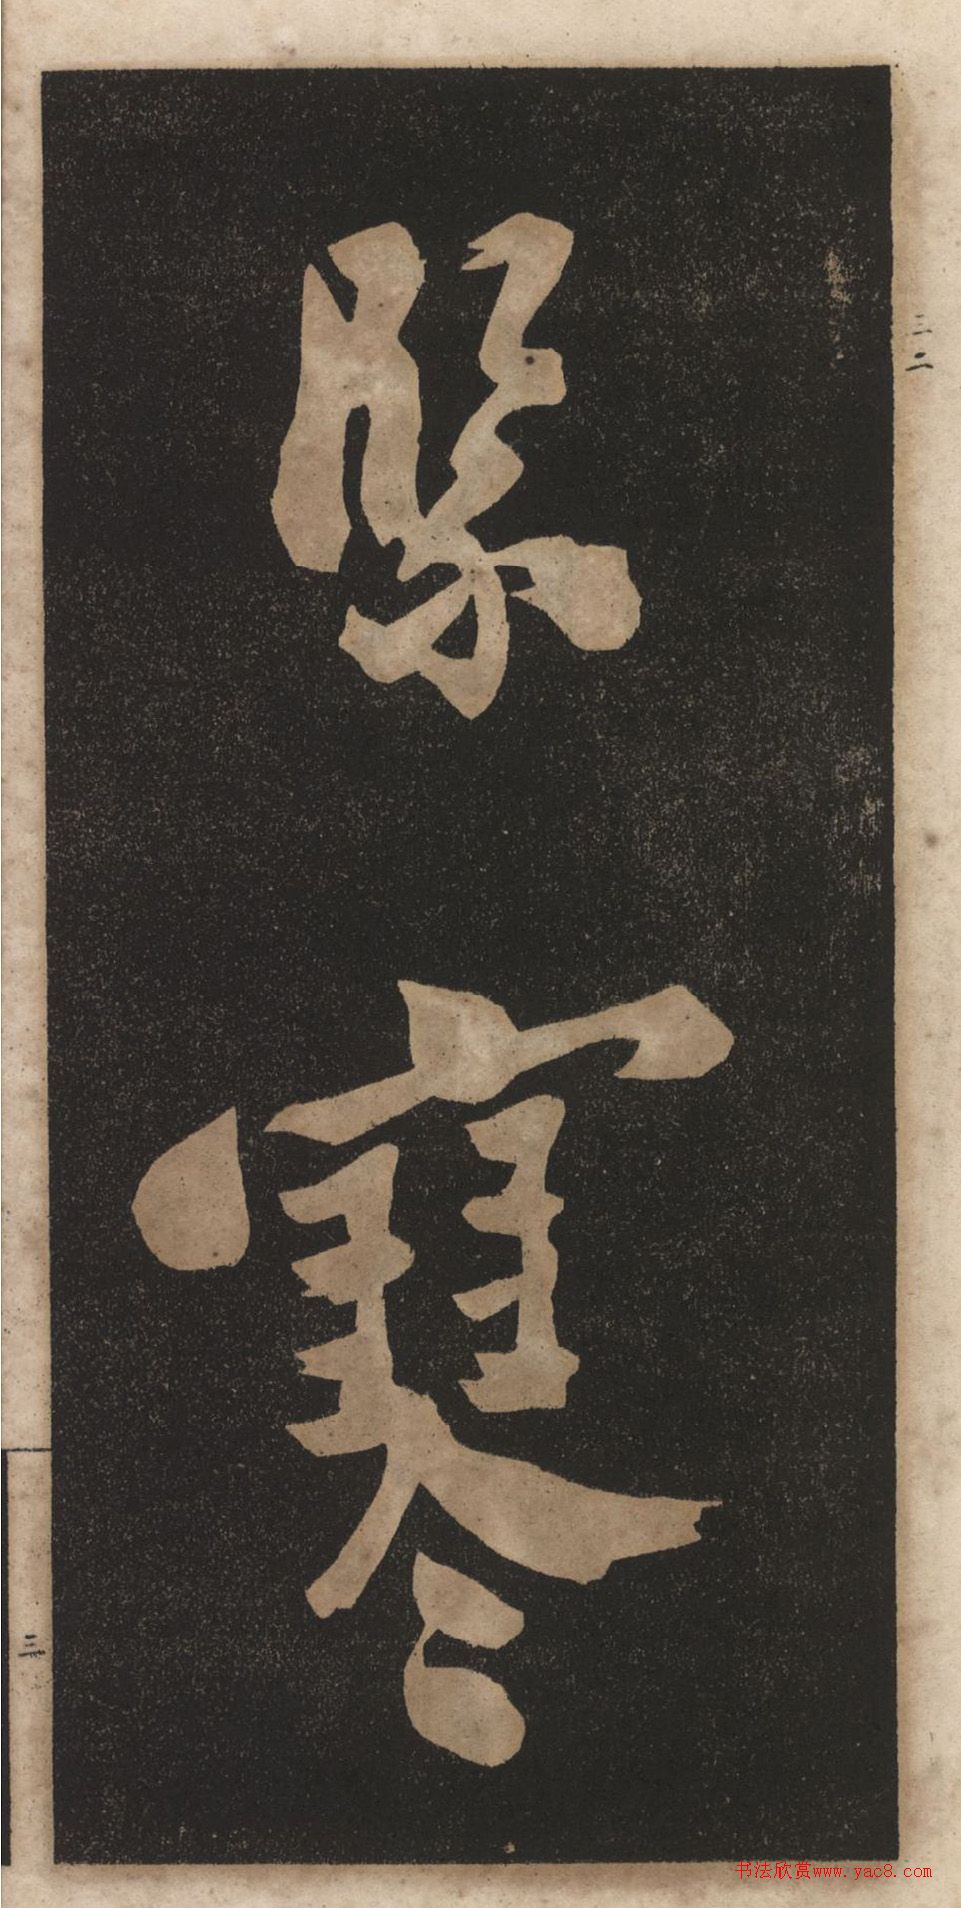 緊寒
三二
书法欣赏www.yac8.com